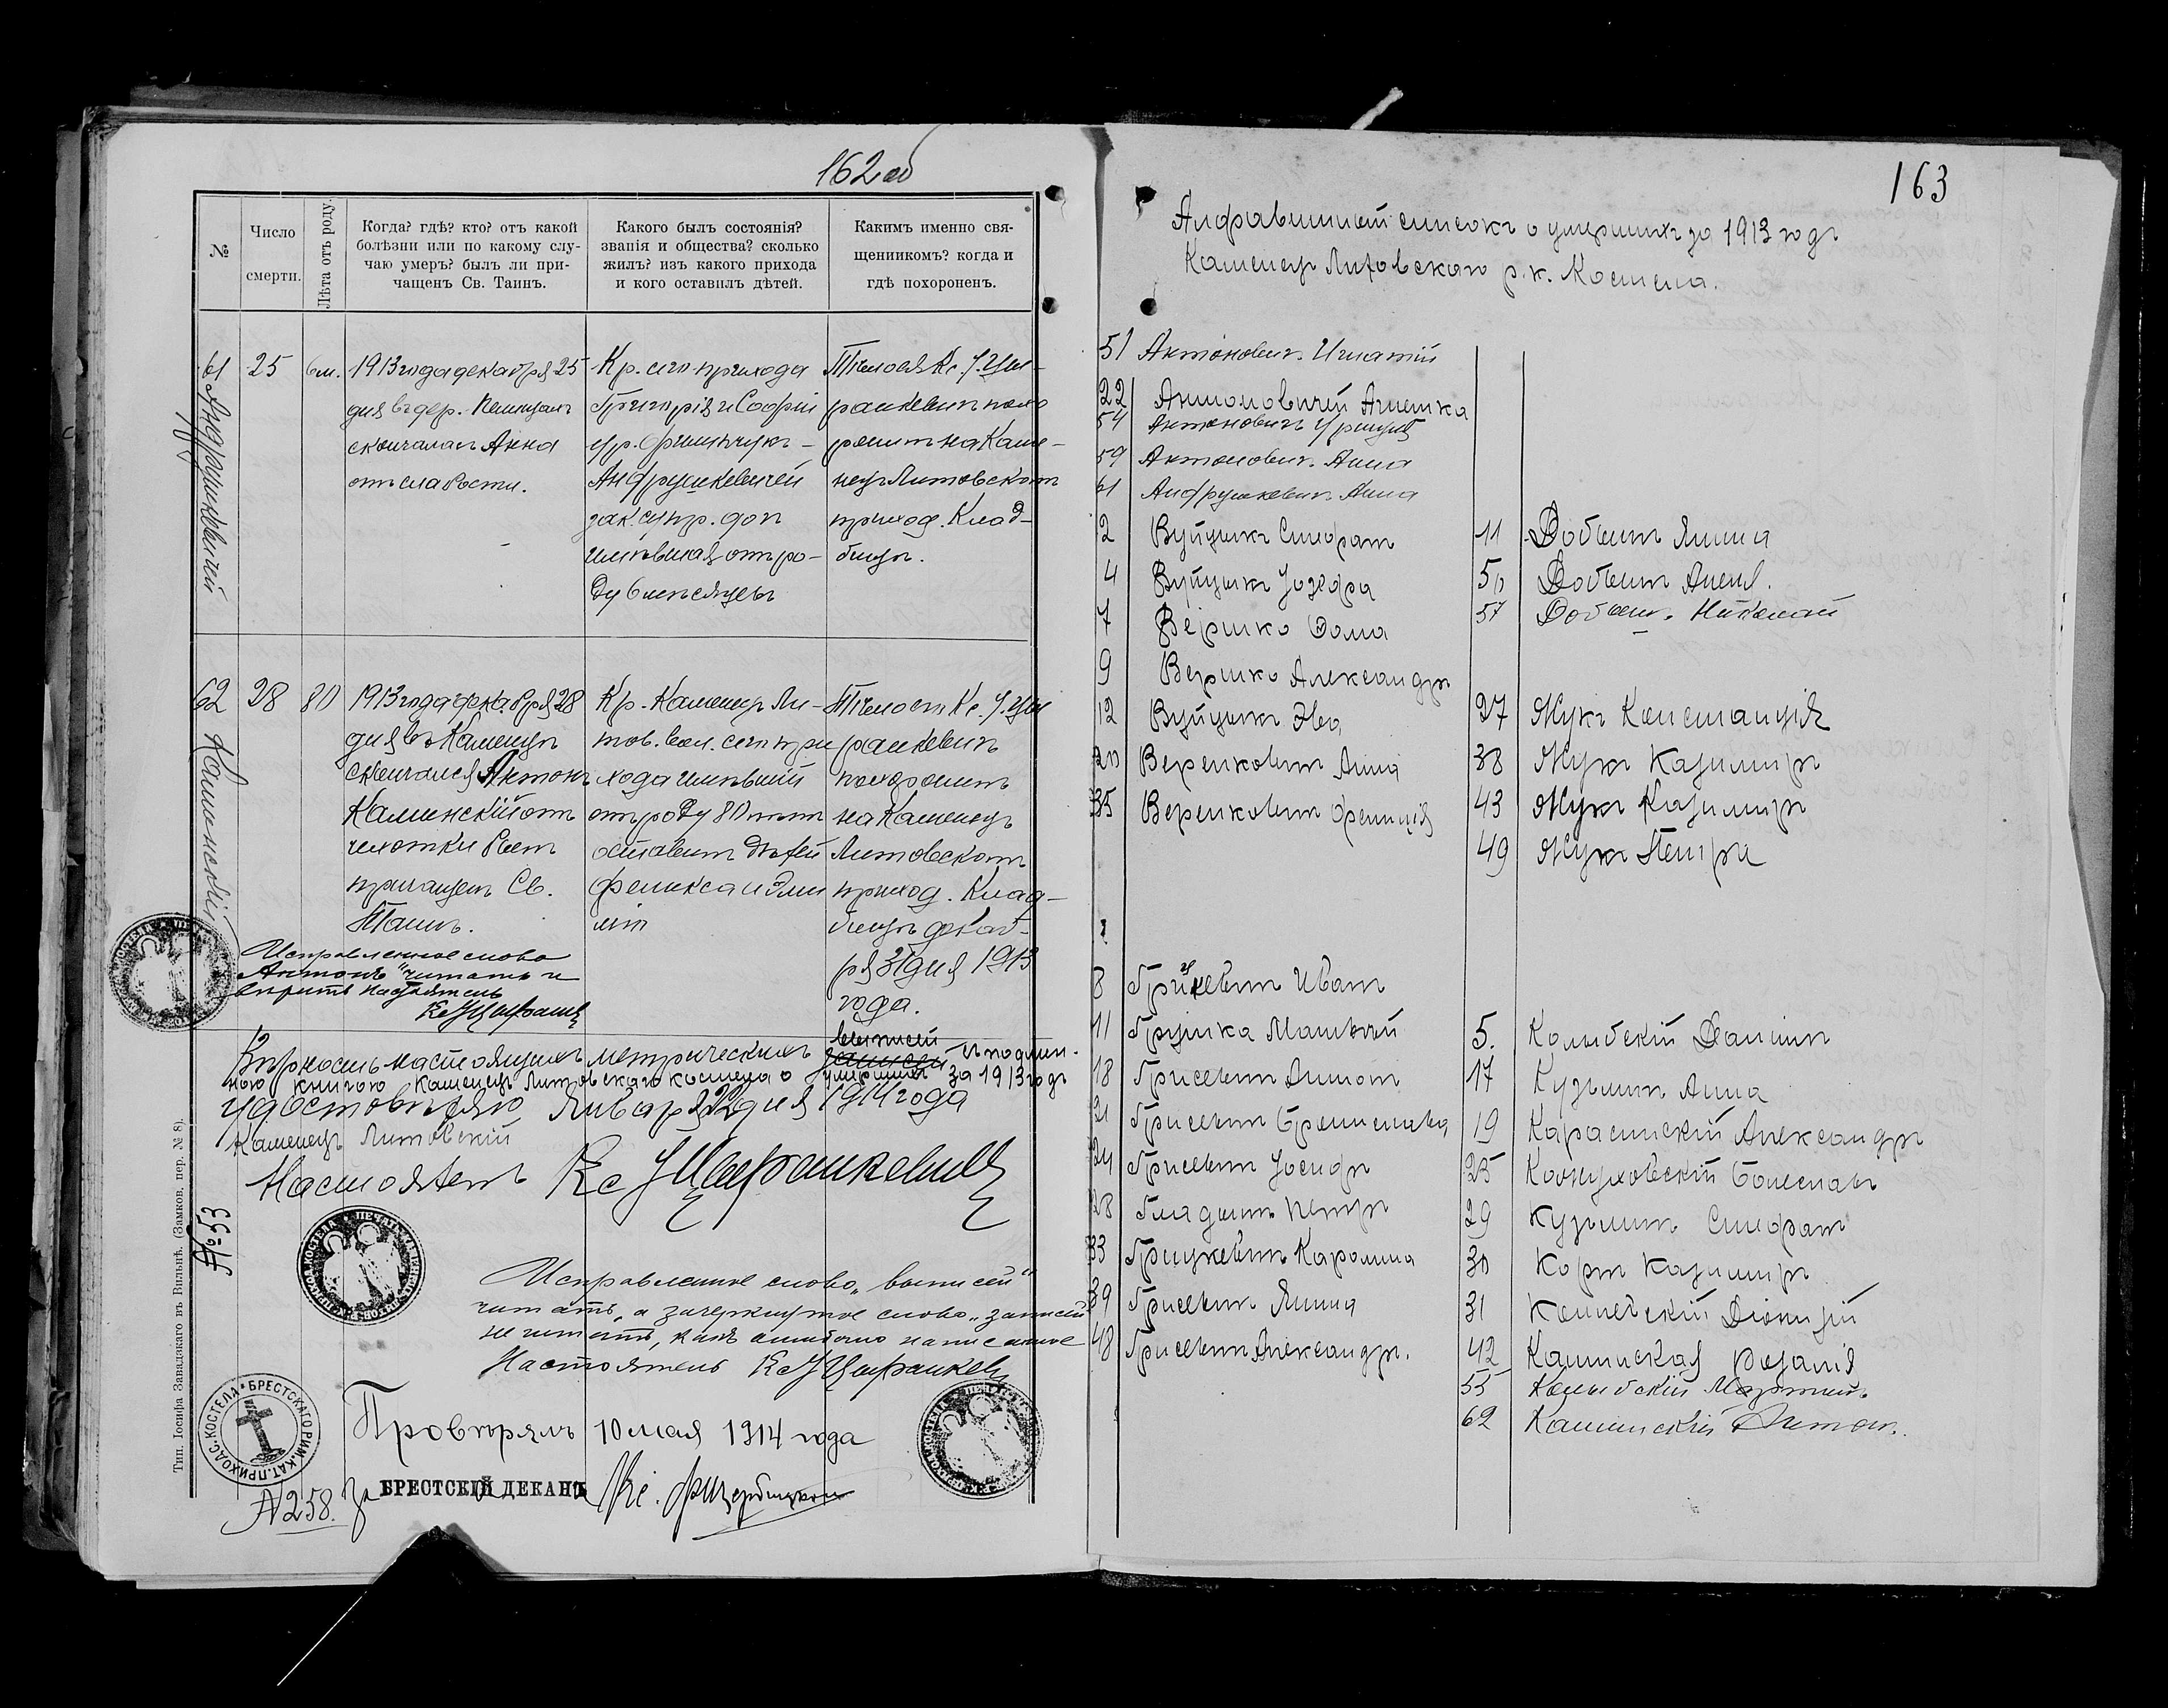 162 об
№
Число
смерти.
Лѣта отъ роду.
Когда? гдѣ? кто? отъ какой
болѣзни или по какому слу-
чаю умеръ? былъ ли при-
чащенъ Св. Таинъ.
Какого былъ состоянія?
званія и общества? сколько
жилъ? изъ какого прихода
и кого оставилъ дѣтей.
Какимъ именно свя-
щенникомъ? когда и
гдѣ похороненъ.
61
Андрушкевичей
25
6 м.
1913 года декабря 25
дня въ дер.
скончалась Анна
отъ слабости.
Кр. сего прихода
Григорія и Софіи
Андрушкевичей
зак. супр. доч
имѣвшая отъ ро-
ду 6 мѣсяцевъ
Тѣло ея Кс. У. Цы-
ранкевичъ похо
ронилъ на Каме-
нецъ Литовскомъ
приход. Клад-
бищѣ.
62
Каминскій
28
80
1913 года декабря 28
дня въ Каменцѣ
скончался Антонъ
Каминскій отъ
чахотки былъ
причащенъ Св.
Таинъ.
Кр. Каменец Ли-
тов. вол. сего при
хода имѣвшій
отъ роду 80 лѣтъ
оставилъ дѣтей
Феликса и Эми
лію
Тѣло его Кс. У. Цы
ранкевичъ
похоронилъ
на Каменецъ
Литовскомъ
приход. Клад-
бищѣ декаб-
ря 31 дня 1913
года.
Исправленное слово
"Антонъ" читать и
вѣрить Настоятель
Вѣрность настоящихъ метрическихъ выписей записей съ подлин-
ною книгою Каменецъ Литовскаго костела о умершихъ за 1913 годъ
удостовѣряю Января 22 дня 1914 года
Каменецъ Литовскій
Настоятель Кс У Цыранкевичъ
№ 53
Исправленное слово „выписей"
читать, а зачеркнутое слово „записей
не читать, какъ ошибочно написанное
Настоятель Кс У Цыранкевичъ
БРЕСТСКАГО РИМ. КАТ. ПРИХОДС. КОСТЕЛА
Провѣрялъ 10 мая 1914 года
за БРЕСТСКІЙ ДЕКАНЪ
№ 258.
Тип. Іосифа Завадзкаго въ Вильнѣ. (Замков. пер. № 8).
163
Алфавитный списокъ о умершихъ за 1913 годъ
Каменецъ Литовскаго р.к. Костела.
51 Антоновичъ Игнатій
22 Антоновичей Агнешка
54 Антоновичъ Уршуля
59 Антоновичъ Анна
61 Андрушкевичъ Анна
2 Вуйцикъ Стефанъ
4 Вуйцикъ Юзефа
7 Вершко
9 Вершко Александръ
12 Вуйцикъ Эва
20 Веренковичъ Анна
35 Веренковичъ
8 Грицкевичъ Иванъ
11 Грушка Матвѣй
18 Грисевичъ Антонъ
21 Грисевичъ Брониславъ
24 Грисевичъ Іосифъ
28 Гладышъ Петръ
33 Грицкевичъ Каролина
39 Грисевичъ Янина
48 Грисевичъ Александръ.
11 Добошъ Янина
50 Добошъ
57 Добошъ Николай
27 Жукъ Констанція
38 Жукъ Казимиръ
43 Жукъ Казимиръ
49 Жукъ Петра
5. Колыбскій
17 Кузьмичъ Анна
19 Карасинскій Александръ
25 Кожуховскій Болеславъ
29 Кузьмичъ Стефанъ
30 Корж Казимиръ
31 Діонизій
42 Каминская Розалія
55 Колыбскій
62 Каминскій Антонъ.